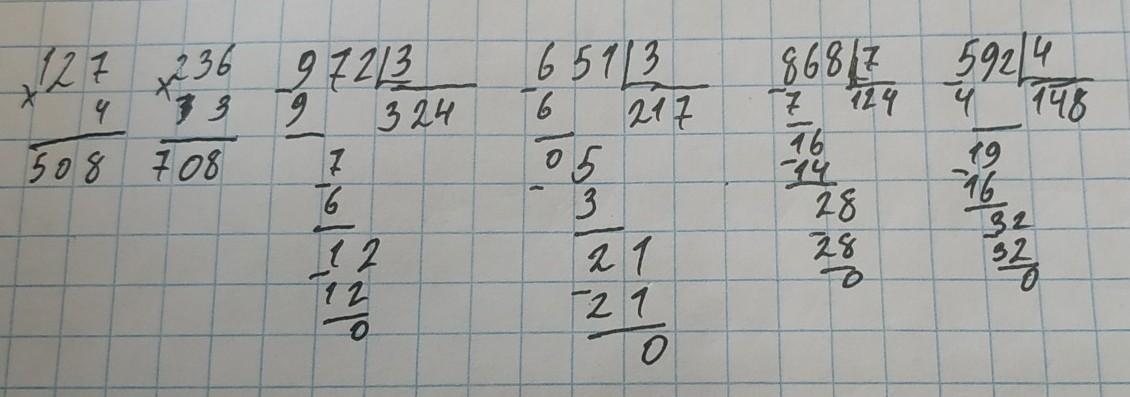 127
× 4
508
236
× 3
708
972|3
- 9 324
7
- 6
12
- 12
0
651|3
- 6 217
05
- 3
21
- 21
0
868|7
- 7 124
16
- 14
28
- 28
0
592|4
- 4 148
19
- 16
32
- 32
0